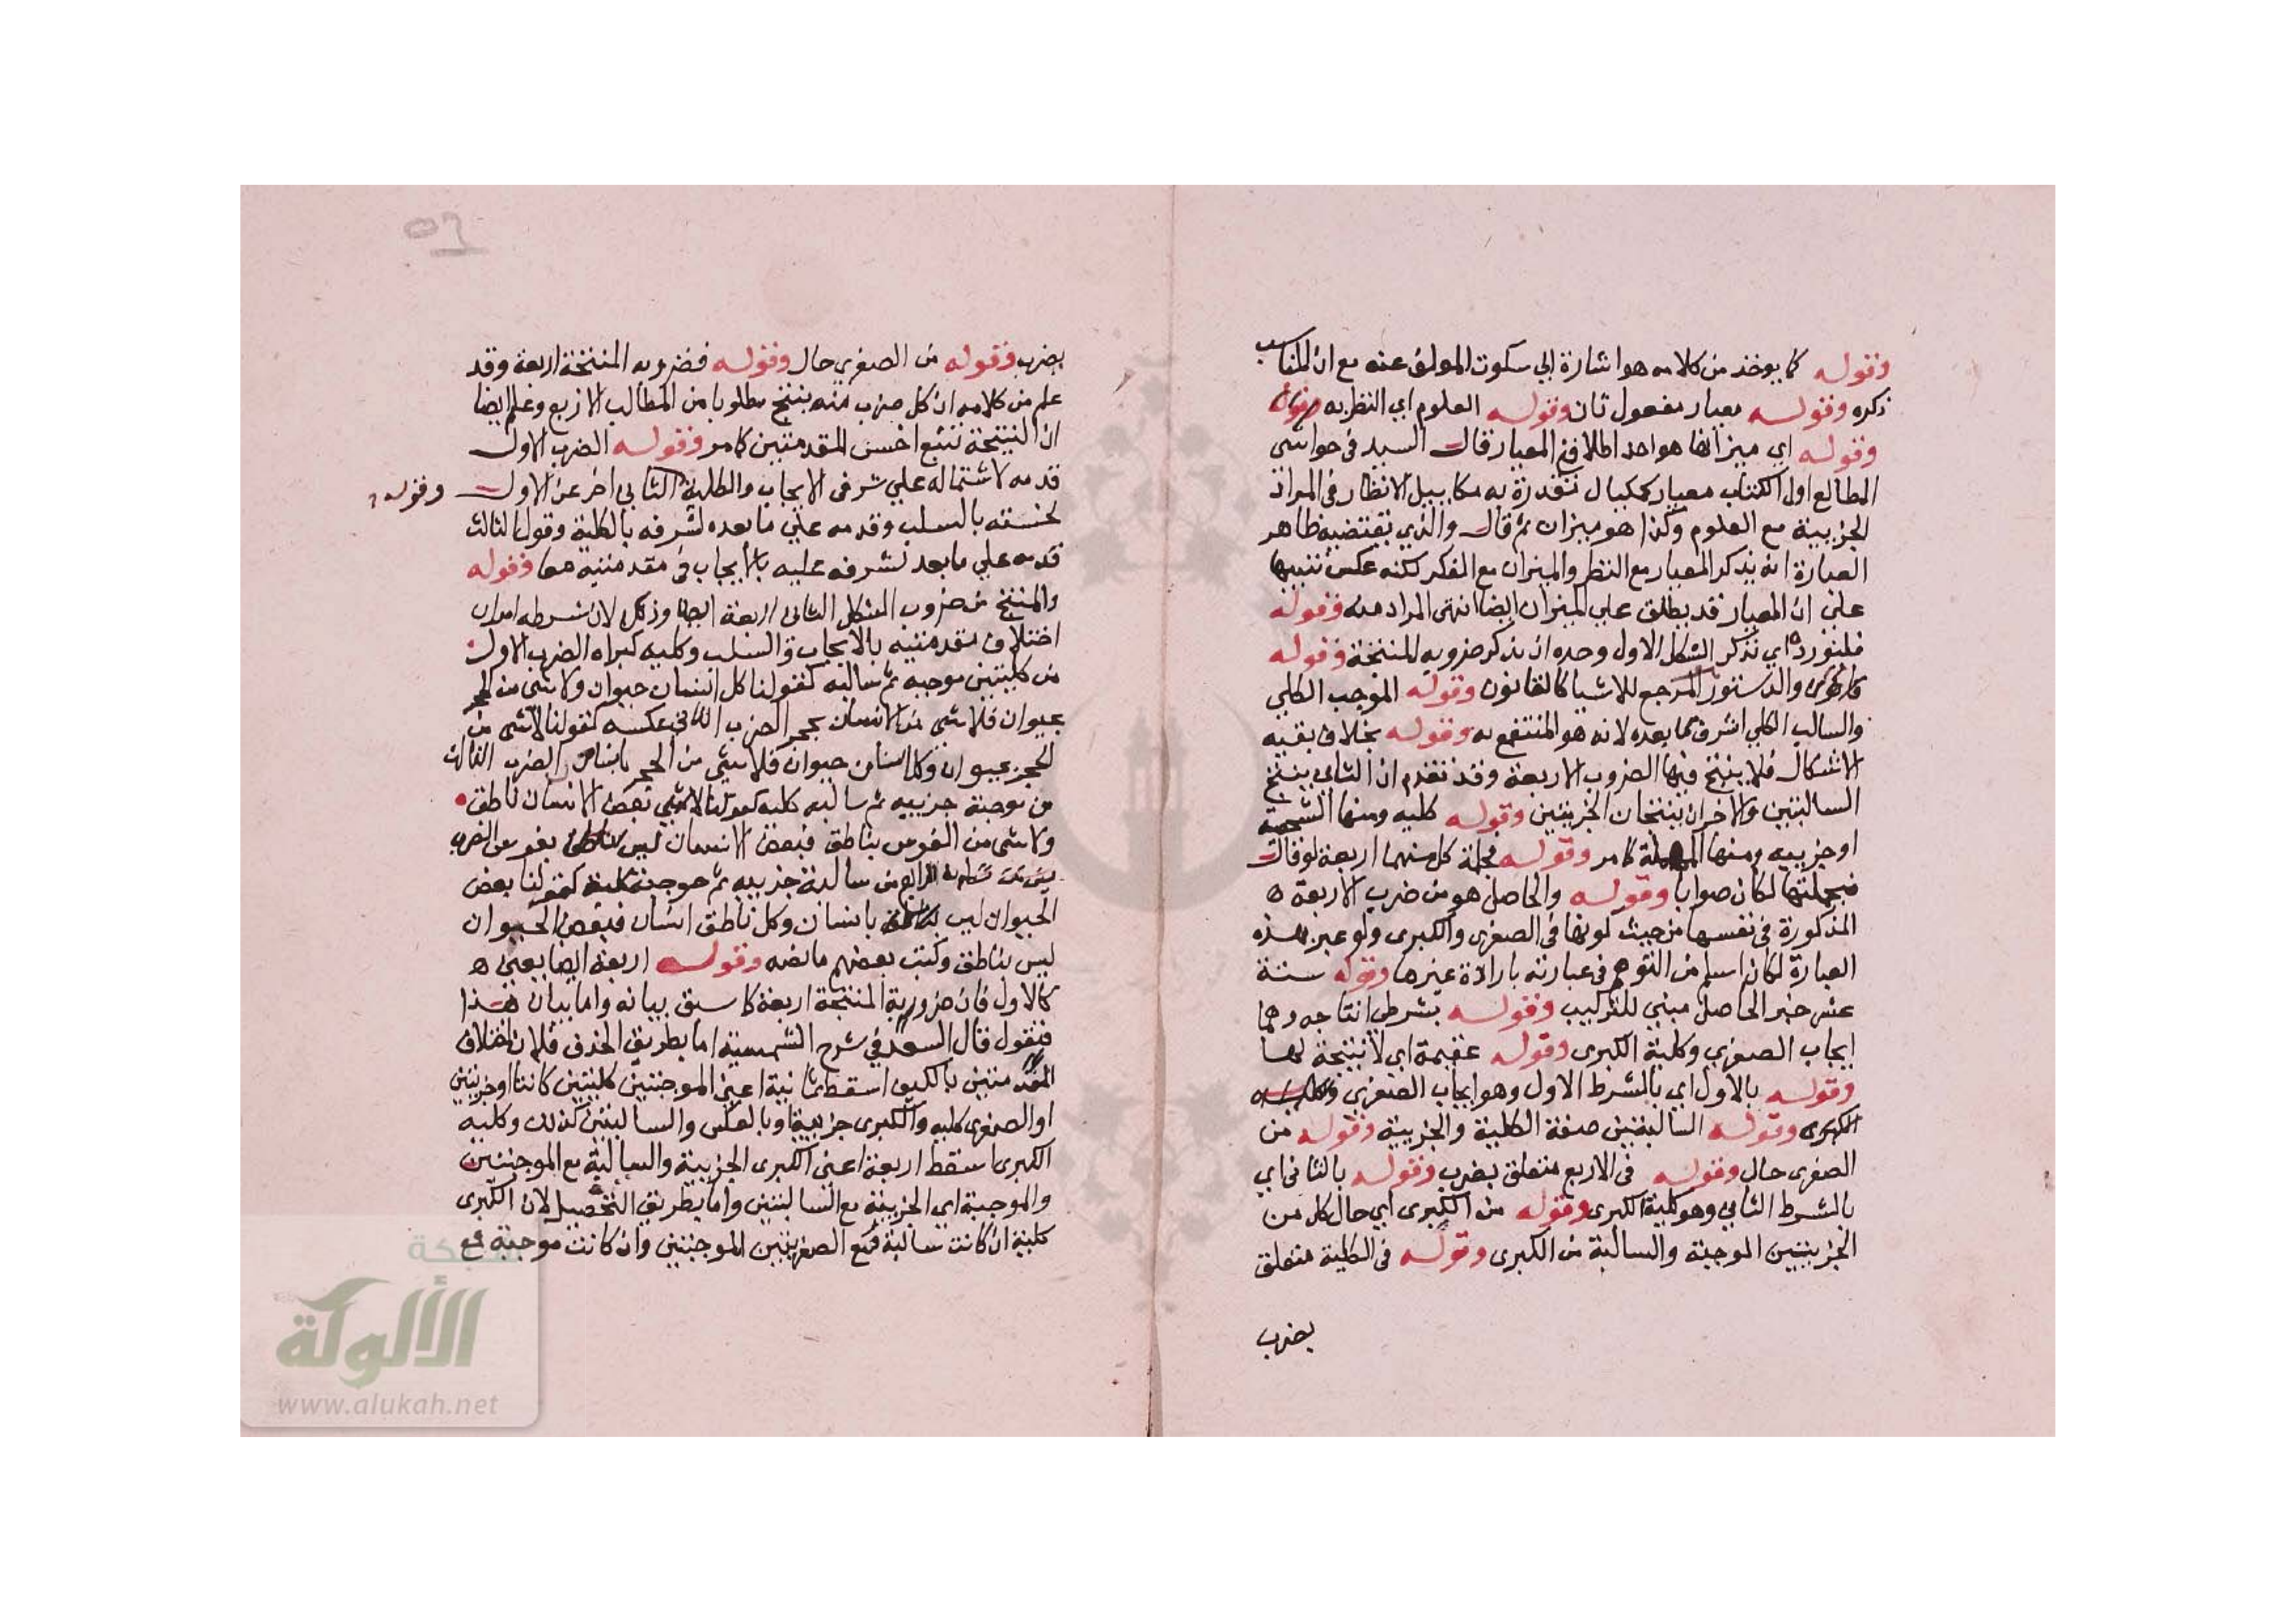 وقوله كما يوخذ من كلامه هو اشارة الي سكوت المولف عنه مع ان المناسب
ذكره وقوله معيار مفعول ثان وقوله العلوم اي النظريه
وقوله اي ميزانها هو احد اطلاق المعيار قال السيد في حواشي
المطالع اول الكتاب معيار كمكيال تتقدر به مكاييل الانظار في المراد
الجزييية مع العلوم وكذا هو ميزان ثم قال والذي يقتضيه ظاهر
العبارة انه يذكر المعيار مع النظر والميزان مع الفكر لكنه عكس تنبيها
علي ان المعيار قد يطلق علي الميزان ايضا انتهي المراد منه فقوله
فلنورده اي نذكر الشكل الاول وحده اي نذكر ضروبه المنتجة وقوله
والدستور المرجع للاشيا كالقانون وقوله الموجب الكلي
والسالب الكلي اشرف مما بعده لانه هو المنتفع به وقوله بخلاف بقيه
الاشكال فلا ينتج فيها الضروب الاربعة وقد تقدم ان الثاني ينتج
السالبتين والاخران ينتجان الجزيتين وقوله كليه ومنها الشخصية
او جزييه ومنها المهملة كما مر وقوله فجملة كل منهما اربعة لو قال
فجملتها لكان صوابا وقوله والحاصل هو من ضرب الاربعة ه
المذكورة في نفسها من حيث كونها في الصغرى والكبرى ولو عبر بهذه
العبارة لكان اسلم من التوهم في عبارته بارادة غيرها وقوله ستة
عشر خبر الحاصل مبني للتركيب وقوله بشرطي انتاجه وهما
ايجاب الصغري وكلية الكبرى وقوله عقيمة اي لا نتيجة لها
وقوله بالاول اي بالشرط الاول وهو ايجاب الصغري
الكبرى وقوله السالبتين صفة الكلية والجزيية وقوله من
الصغرى حال وقوله في الاربع متعلق بضرب وقوله بالثاني اي
بالشرط الثاني وهو كلية الكبرى وقوله من الكبرى اي حال كل من
الجزييتين الموجبة والسالبة من الكبرى وقوله في الكلية متعلق
بضرب
بضرب فقوله من الصغري حال وقوله فضروبه المنتجة اربعة وقد
علم من كلامه ان كل ضرب منه ينتج مطلوبا من المطالب الاربع وعلم ايضا
ان النتيجة تتبع اخسن المقدمتين كما مر وقوله الضرب الاول
قدمه لاشتماله علي شرفي الايجاب والكلية الثاني اخر عن الاول وقوله
لخسته بالسلب وقدمه علي ما بعده لشرفه بالكلية وقوله الثالث
قدمه علي ما بعد لشرفه عليه بالايجاب في مقدمتيه معا فقوله
والمنتج من ضروب الشكل الثاني اربعة ايضا وذلك لان شرطه امران
اختلاف مقدمتيه بالايجاب والسلب وكليه كبراه الضرب الاول
من كليتين موجبه ثم سالبه كقولنا كل انسان حيوان ولا شي من الحجر
بحيوان فلا شي من الانسان بحجر الضرب الثاني عكسه كقولنا لا شي من
الحجر بحيوان وكل انسان حيوان فلا شي من الحجر بانسان الضرب الثالث
من موجبة جزييه ثم سالبه كليه كقولنا بعض الانسان ناطق
ولا شي من الفرس بناطق فبعض الانسان ليس بفرس الضرب
الرابع من سالبة جزييه ثم موجبة كلية كقولنا بعض
الحيوان ليس بانسان وكل ناطق انسان فبعض الحيوان
ليس بناطق وكتب بعضهم ما نصه وقوله اربعة ايضا يعني ه
كالاول فان ضروبه المنتجة اربعة كما سبق بيانه واما بيان هذا
فنقول قال السعد في شرح الشمسية اما بطريق الحذف فلان اختلاف
المقدمتين بالكيف اسقط ثمانية اعني الموجبتين كليتين كانتا او جزيتين
او الصغرى كليه والكبرى جزييه او بالعكس والسالبتين كذلك وكليه
الكبرى اسقط اربعة اعني الكبرى الجزيية والسالبة مع الموجبتين
والموجبة اي الجزيية مع السالبتين واما بطريق التحصيل لان الكبرى
كلية ان كانت سالبة فمع الصغريتين الموجبتين وان كانت موجبة فمع
شبكة
الألوكة
www.alukah.net